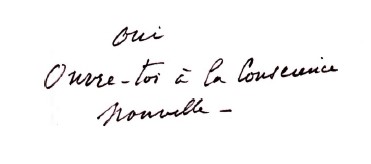 oui
Ouvre-toi à la Conscience
nouvelle -